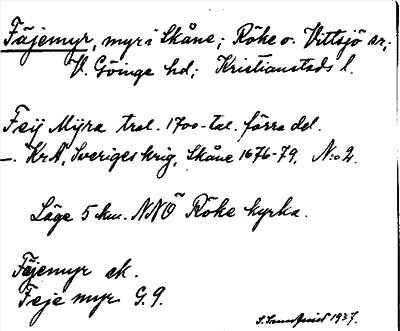 Fäjemyr, myr i Skåne; Röke o. Vittsjö sr;
V. Göinge hd; Kristianstads l.
Feij Mÿra trol. 1700-tal. förra del.
—. KrA, Sveriges krig, Skåne 1676-79, N:o 2.
Läge 5 km. NNÖ Röke kyrka.
Fäjemyr ek.
Feje myr G. 9.
1937.